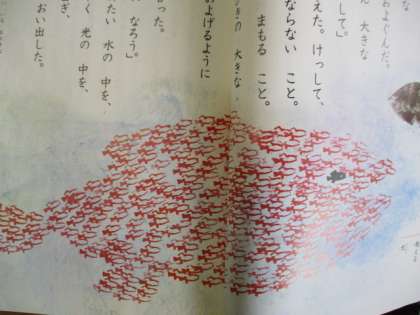 な
およぐんだ。
ん 大きな
して」
えた。けっして、
ならない こと。
まもる こと。
きの 大きな
およげるように
った。
なろう」
たい 水の 中を、
く 光の 中を、
ぎ、
おい出した。